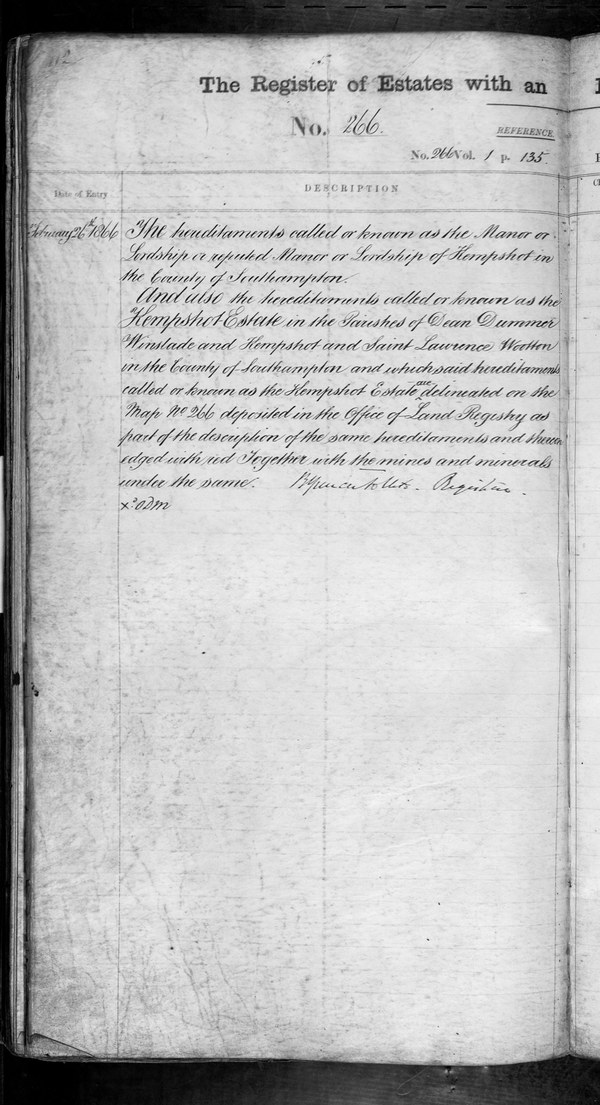 The Register of Estates with an
No. 266.
REFERENCE
No. 266 Vol. 1 p. 135
Date of Entry
DESCRIPTION
February 26th 1866
The hereditaments called or known as the Manor or
Lordship or reputed Manor or Lordship of Hempshot in
the County of Southampton.
And also the hereditaments called or known as the
Hempshot Estate in the Parishes of Dean Dummer
Winslade and Hempshot and Saint Lawrence Wootton
in the County of Southampton and which said hereditaments
called or known as the Hempshot Estate are delineated on the
Map No 266 deposited in the Office of Land Registry as
part of the description of the same hereditaments and thereon
edged with red Together with the mines and minerals
under the same. Registrar.